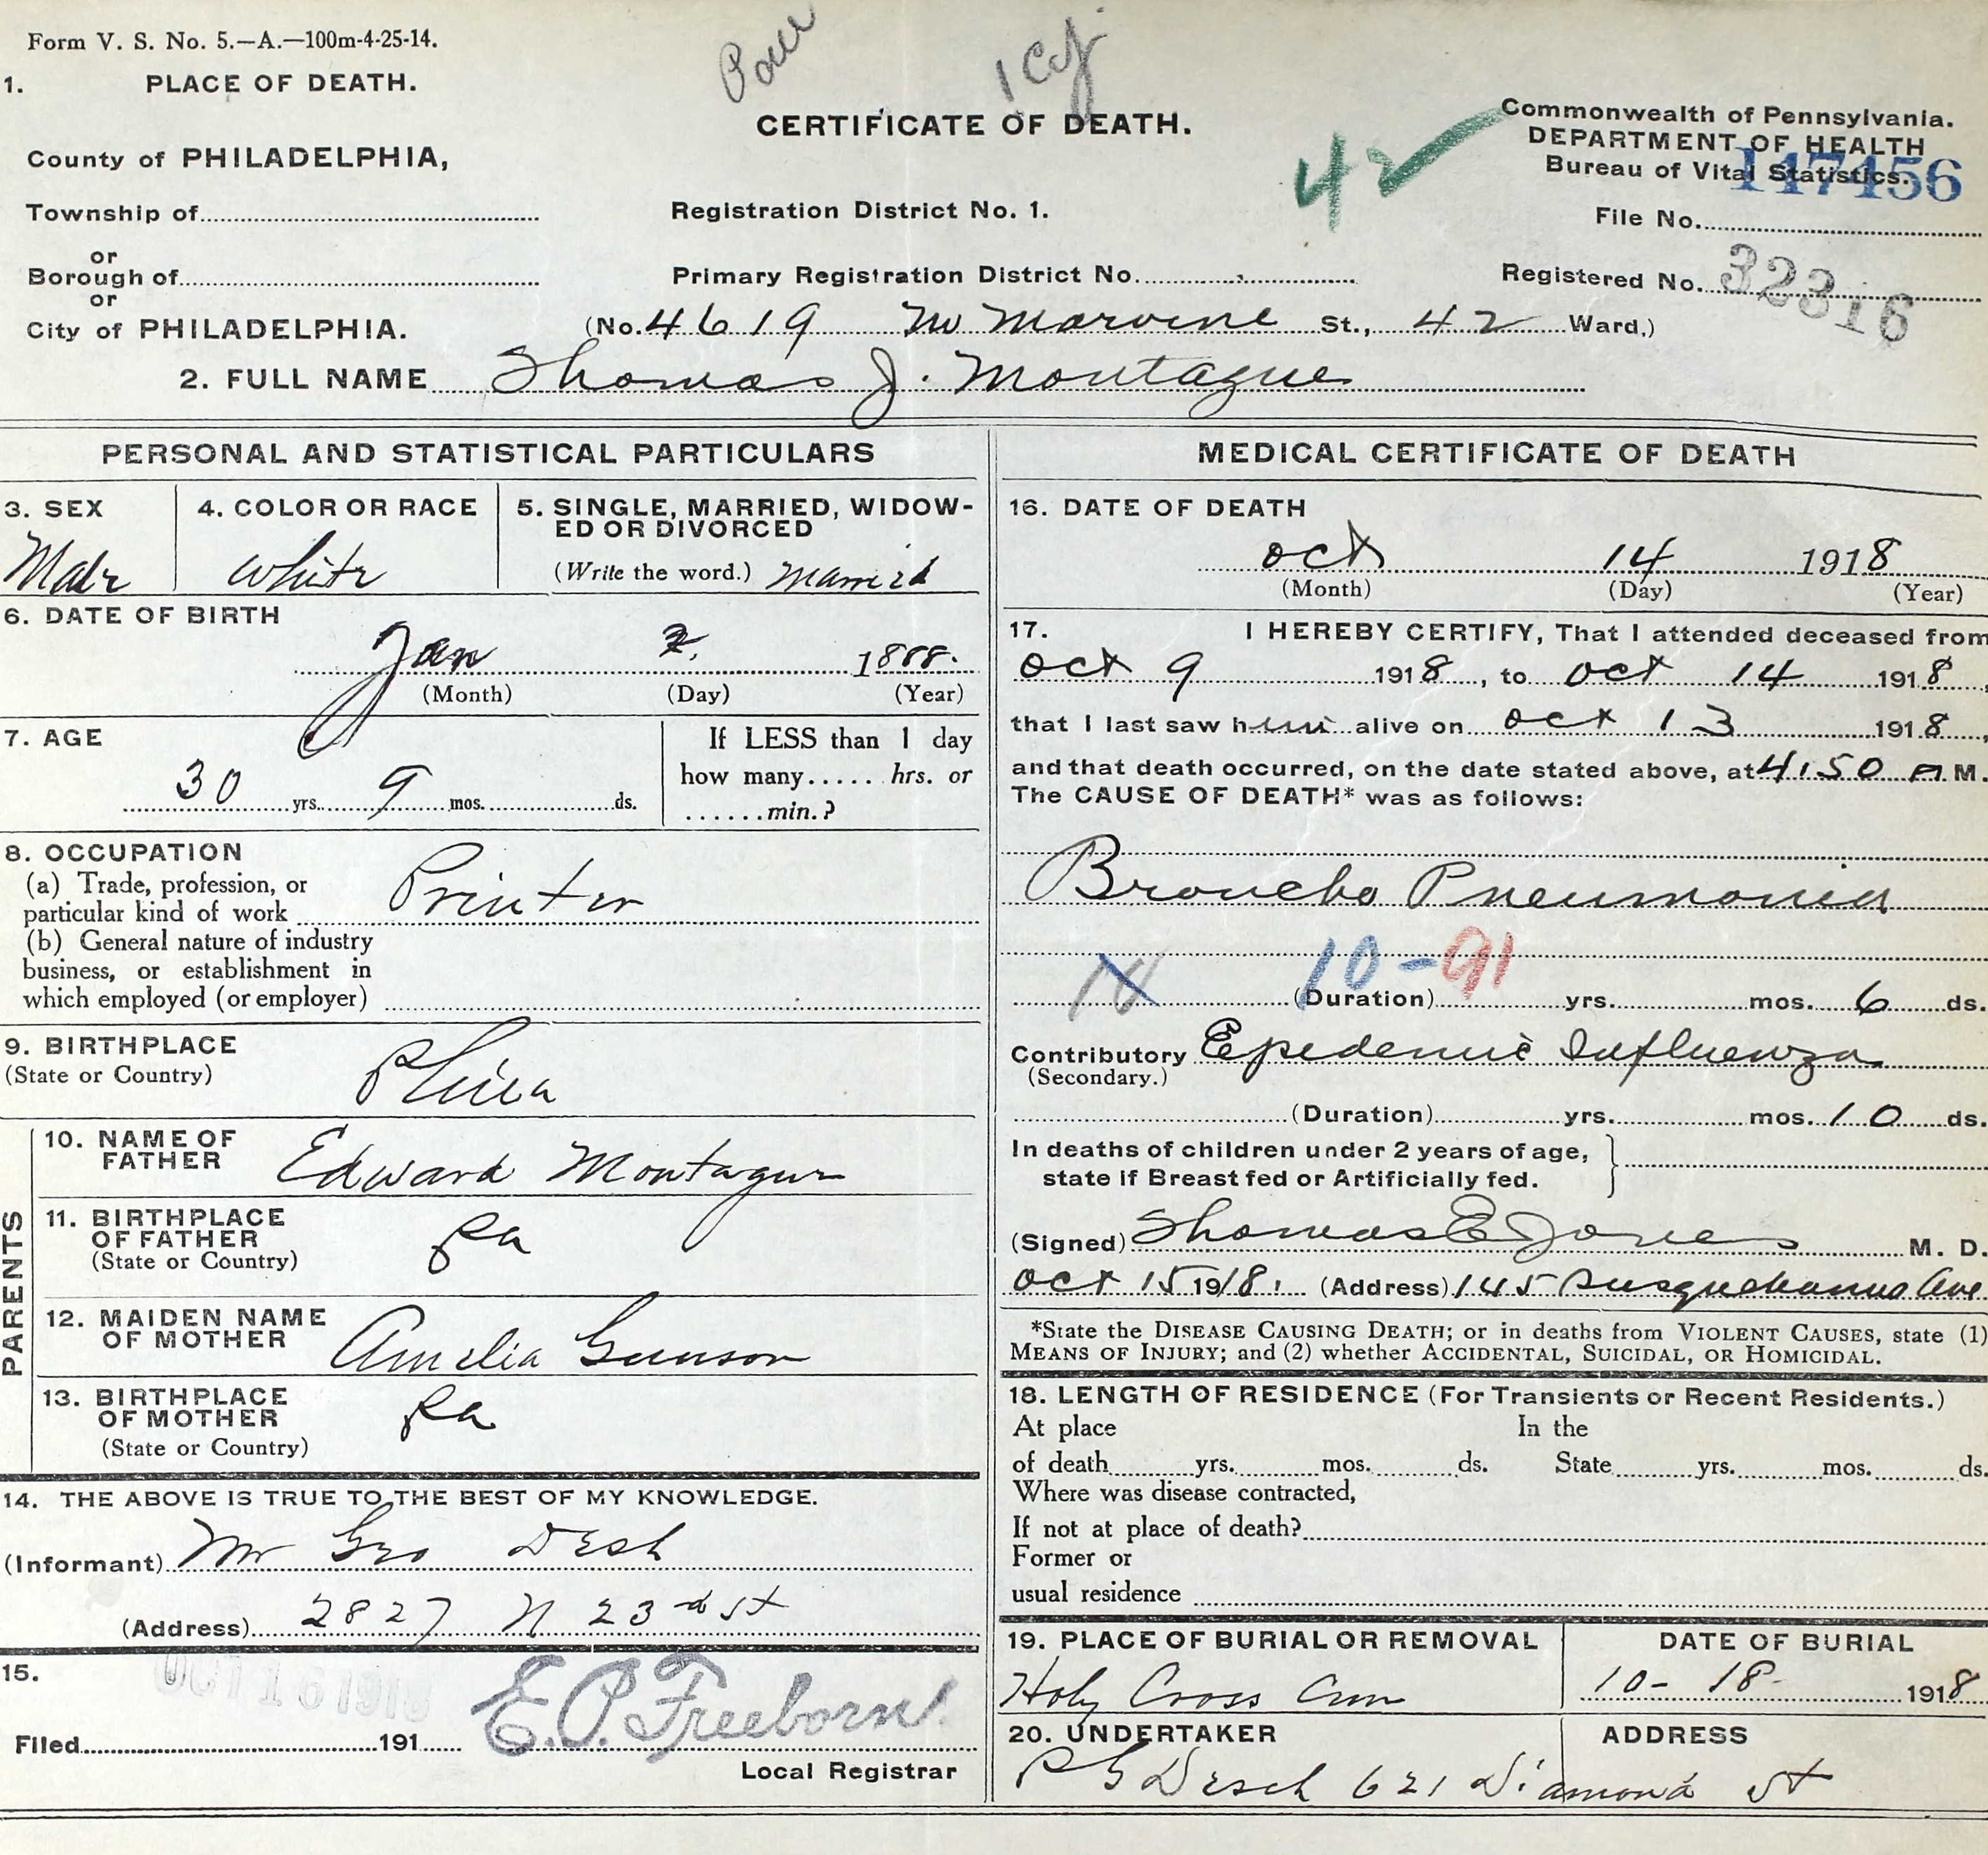 Form V. S. No. 5.—A.—100m-4-25-14.
1. PLACE OF DEATH.
CERTIFICATE OF DEATH.
Commonwealth of Pennsylvania.
DEPARTMENT OF HEALTH
Bureau of Vital Statistics.
117456
County of PHILADELPHIA,
42
Township of
Registration District No. 1.
File No.
or
Borough of
Primary Registration District No.
Registered No. 32316
or
City of PHILADELPHIA.
(No. 4619 N Marvine St., 42 Ward.)
2. FULL NAME Thomas J. Montague
PERSONAL AND STATISTICAL PARTICULARS
3. SEX
Male
4. COLOR OR RACE
White
5. SINGLE, MARRIED, WIDOW-
ED OR DIVORCED
(Write the word.) Married
6. DATE OF BIRTH
Jan 2, 1888.
(Month) (Day) (Year)
7. AGE
30 yrs. 9 mos. ds.
If LESS than 1 day
how many..... hrs. or
......min.?
8. OCCUPATION
(a) Trade, profession, or
particular kind of work Printer
(b) General nature of industry
business, or establishment in
which employed (or employer)
9. BIRTHPLACE
(State or Country)
Phila
PARENTS
10. NAME OF
FATHER
Edward Montague
11. BIRTHPLACE
OF FATHER
(State or Country)
Pa
12. MAIDEN NAME
OF MOTHER
Amelia Gunson
13. BIRTHPLACE
OF MOTHER
(State or Country)
Pa
14. THE ABOVE IS TRUE TO THE BEST OF MY KNOWLEDGE.
(Informant) Mr Geo Desh
(Address) 2827 N 23rd St
15.
OCT 16 1918
Filed 191
E. P. Freeborn
Local Registrar
MEDICAL CERTIFICATE OF DEATH
16. DATE OF DEATH
Oct 14 1918
(Month) (Day) (Year)
17. I HEREBY CERTIFY, That I attended deceased from
Oct 9 1918, to Oct 14 1918,
that I last saw him alive on Oct 13 1918,
and that death occurred, on the date stated above, at 4:50 A M.
The CAUSE OF DEATH* was as follows:
Broncho Pneumonia
10-91
(Duration) yrs. mos. 6 ds.
Contributory Epidemic Influenza
(Secondary.)
(Duration) yrs. mos. 10 ds.
In deaths of children under 2 years of age,
state if Breast fed or Artificially fed.
(Signed) Thomas E Jones M. D.
Oct 15 1918. (Address) 145 Susquehanna Ave
*State the DISEASE CAUSING DEATH; or in deaths from VIOLENT CAUSES, state (1)
MEANS OF INJURY; and (2) whether ACCIDENTAL, SUICIDAL, OR HOMICIDAL.
18. LENGTH OF RESIDENCE (For Transients or Recent Residents.)
At place In the
of death yrs. mos. ds. State yrs. mos. ds.
Where was disease contracted,
If not at place of death?
Former or
usual residence
19. PLACE OF BURIAL OR REMOVAL
Holy Cross Cem
DATE OF BURIAL
10-18- 1918
20. UNDERTAKER ADDRESS
P G Desch 621 Diamond St